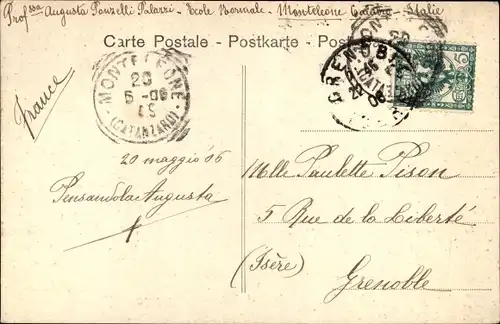 Prof.ssa Augusta Ponzelli Palazzi - Ecole Normale - Monteleone Calabro - Italie
Carte Postale - Postkarte - Post
France
MONTELEONE
20
5-06
4S
(CATANZARO)
GRENOBLE
20 maggio 06
Pensandola Augusta
Mlle Paulette Pison
5 Rue de la Liberté
(Isère)
Grenoble